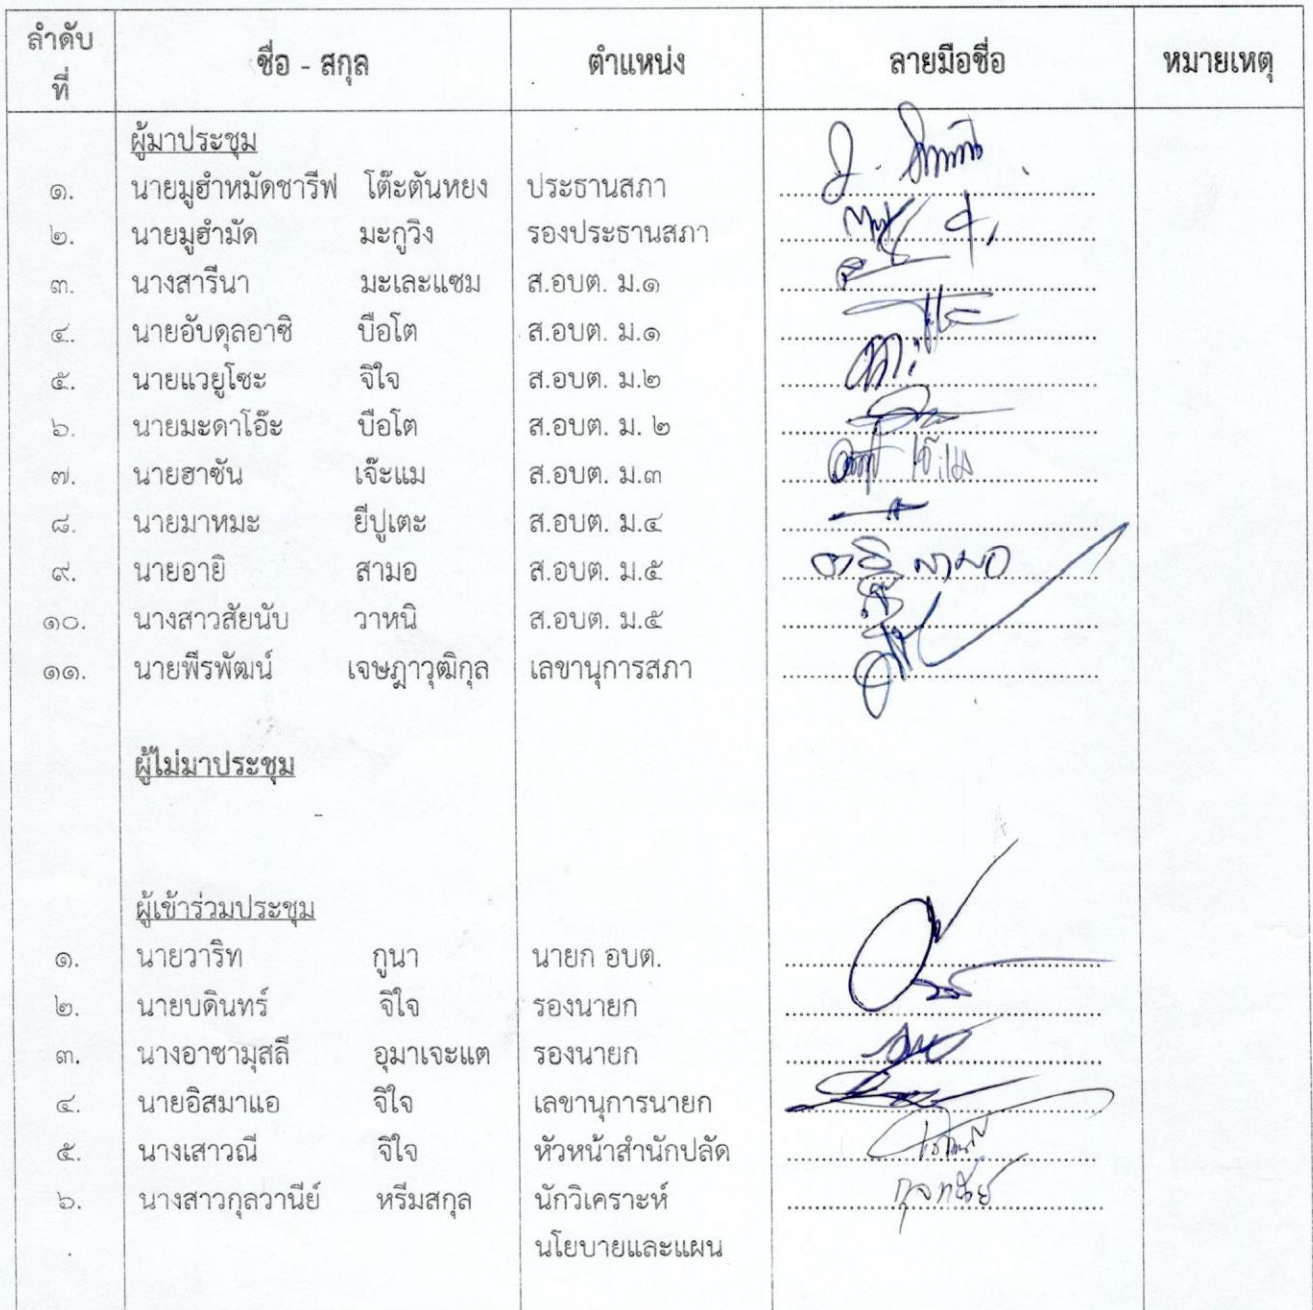 ลำดับที่ ชื่อ - สกุล ตำแหน่ง ลายมือชื่อ หมายเหตุ
ผู้มาประชุม
๑. นายมูฮำหมัดชารีฟ โต๊ะตันหยง ประธานสภา
๒. นายมูฮำมัด มะกูวิง รองประธานสภา
๓. นางสารีนา มะเละแซม ส.อบต. ม.๑
๔. นายอับดุลอาซิ บือโต ส.อบต. ม.๑
๕. นายแวยูโซะ จิใจ ส.อบต. ม.๒
๖. นายมะดาโอ๊ะ บือโต ส.อบต. ม. ๒
๗. นายฮาซัน เจ๊ะแม ส.อบต. ม.๓ เจ๊ะแม
๘. นายมาหมะ ยีปูเตะ ส.อบต. ม.๔
๙. นายอายิ สามอ ส.อบต. ม.๕ อายิ สามอ
๑๐. นางสาวสัยนับ วาหนิ ส.อบต. ม.๕
๑๑. นายพีรพัฒน์ เจษฎาวุฒิกุล เลขานุการสภา
ผู้ไม่มาประชุม
-
ผู้เข้าร่วมประชุม
๑. นายวาริท กูนา นายก อบต.
๒. นายบดินทร์ จิใจ รองนายก
๓. นางอาซามุสลี อุมาเจะแต รองนายก
๔. นายอิสมาแอ จิใจ เลขานุการนายก
๕. นางเสาวณี จิใจ หัวหน้าสำนักปลัด
๖. นางสาวกุลวานีย์ หรีมสกุล นักวิเคราะห์
นโยบายและแผน